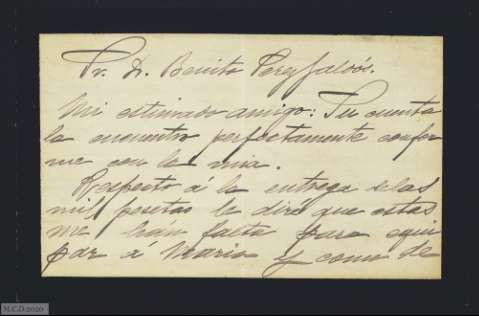 Sr. D. Benito Perez Galdós.
Mi estimado amigo: Su cuenta
la encuentro perfectamente confor
me con la mia.
Respecto á la entrega de las
mil pesetas le diré que estas
me han falta para equi
par á Maria y como de
M.C.D.2020